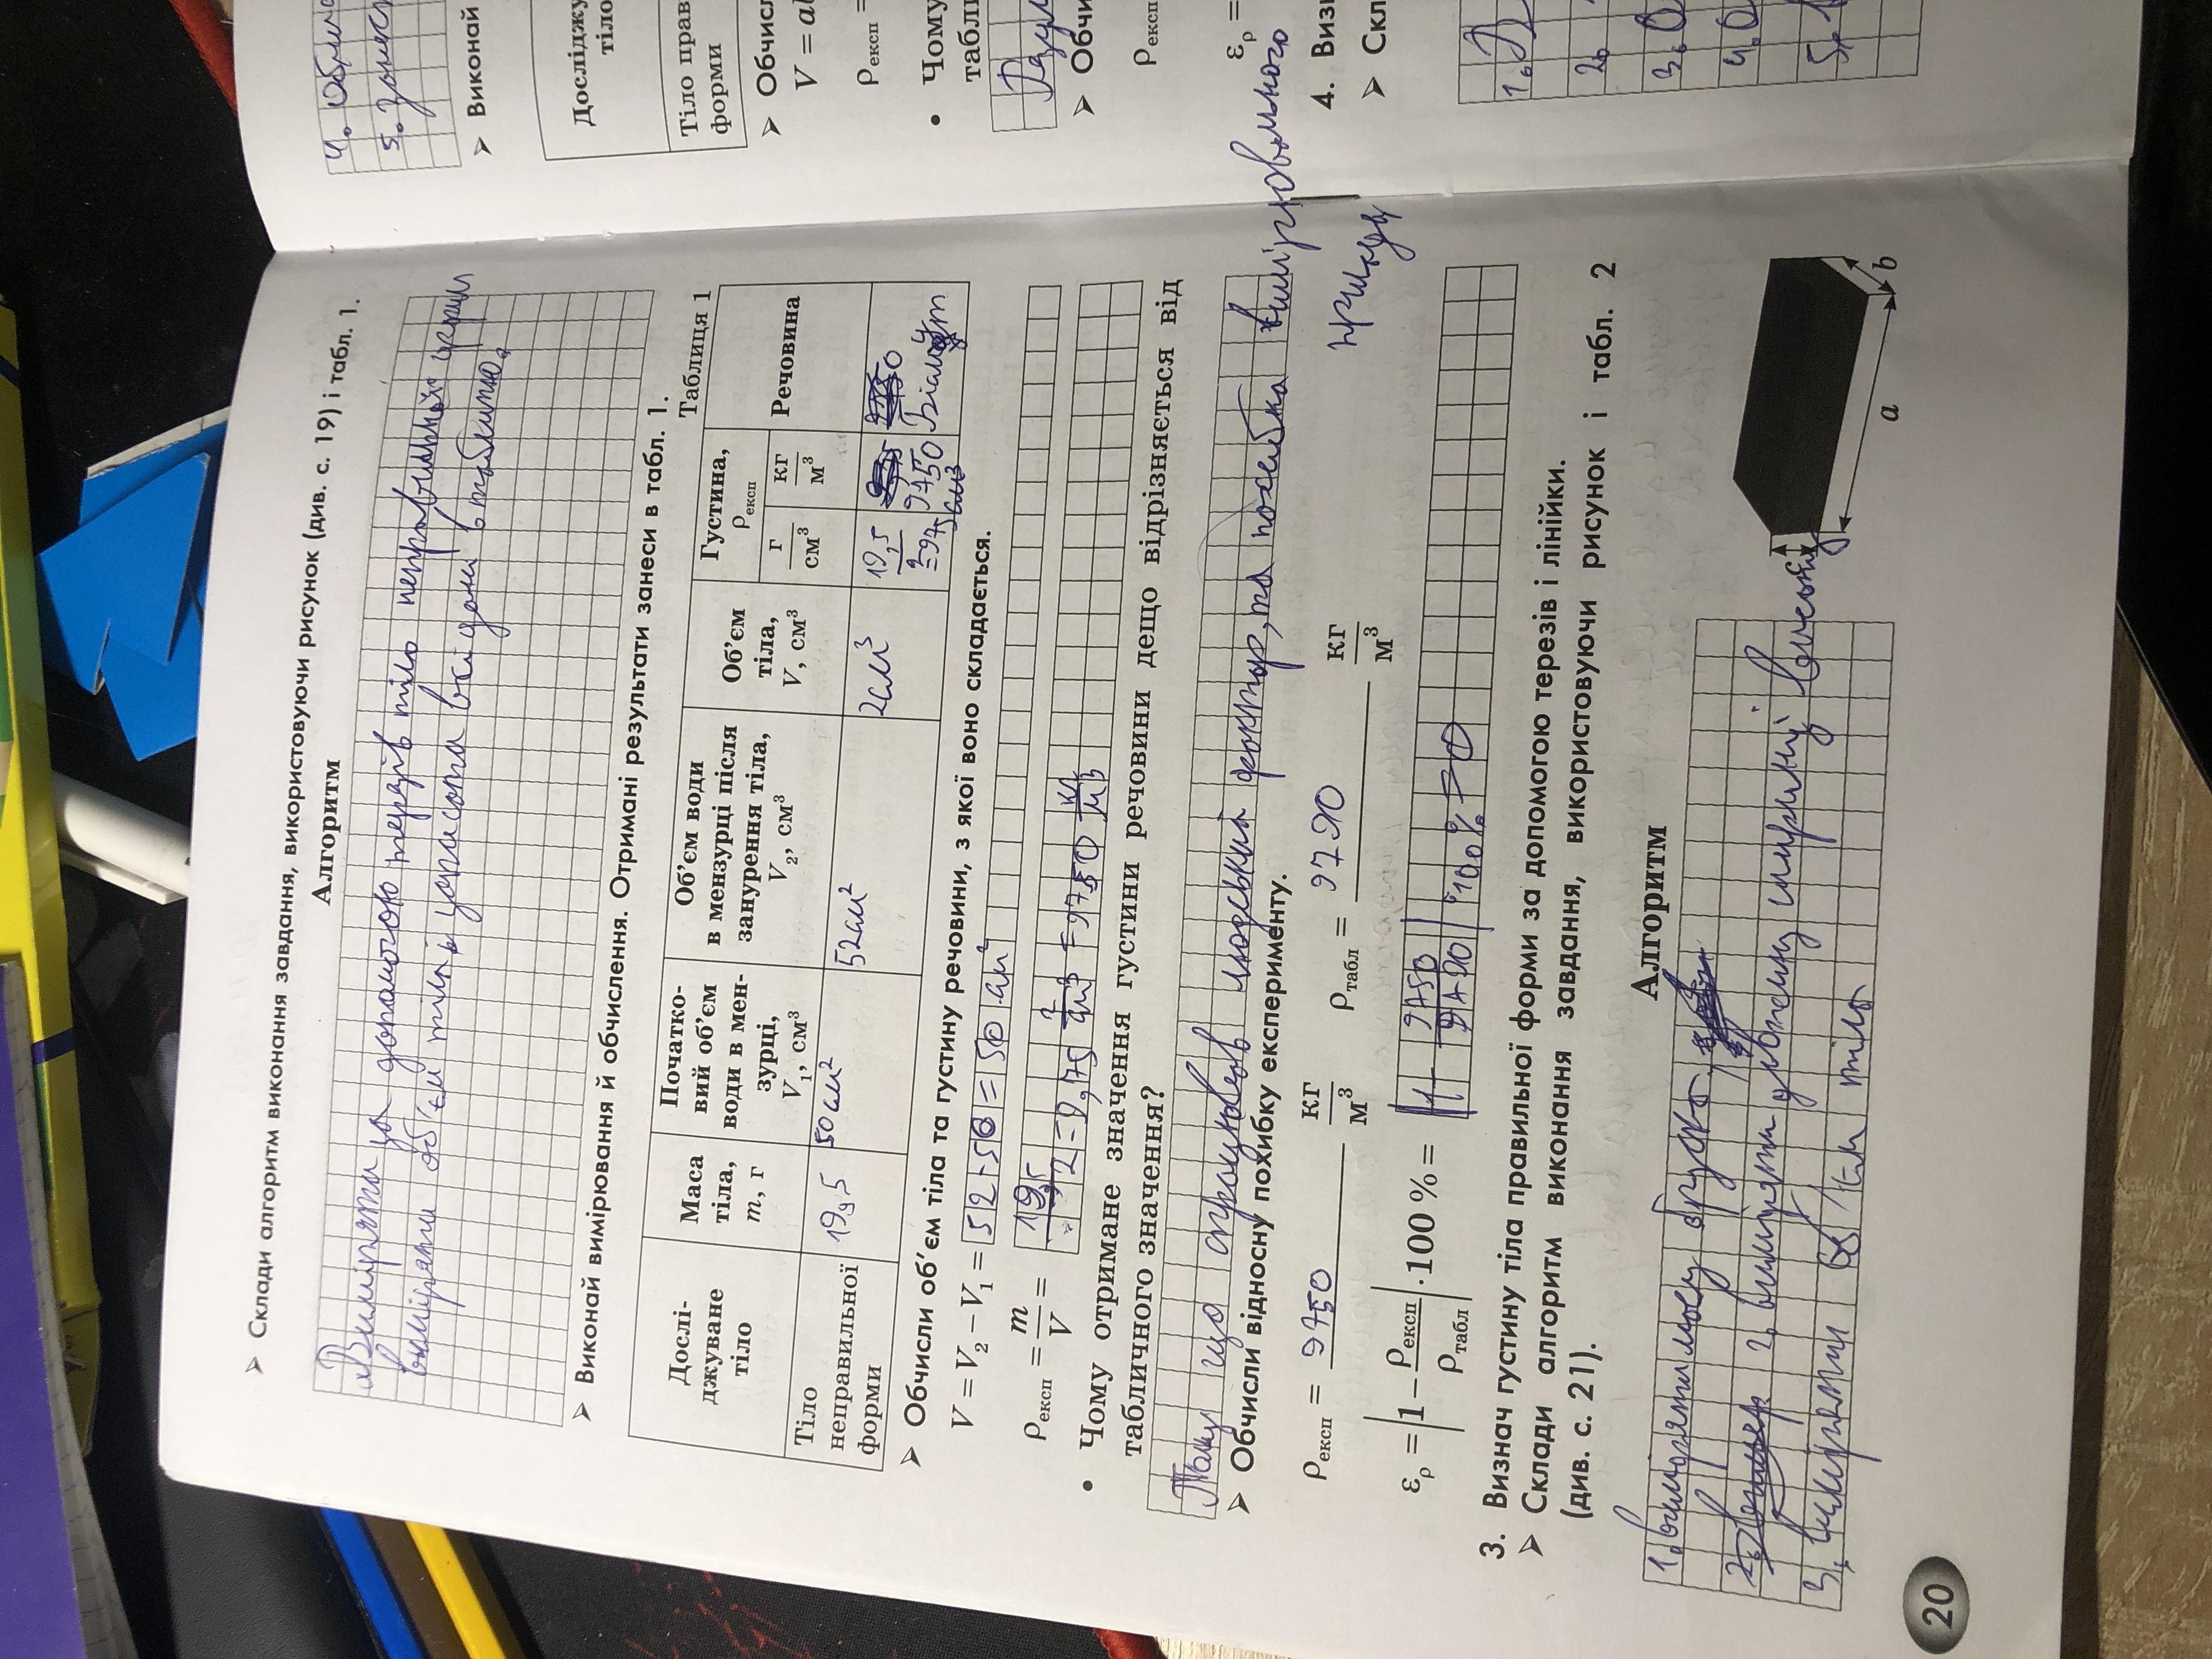 ➤ Склади алгоритм виконання завдання, використовуючи рисунок (див. с. 19) і табл. 1.
Алгоритм
Виміряти за допомогою терезів тіло неправильної
виміряти об'єм тіла і записати всі дані в таблицю.
➤ Виконай вимірювання й обчислення. Отримані результати занеси в табл. 1.
Таблиця 1
Дослі-
джуване
тіло
Маса
тіла,
m, г
Початко-
вий об'єм
води в мен-
зурці,
V1, см³
Об'єм води
в мензурці після
занурення тіла,
V2, см³
Об'єм
тіла,
V, см³
Густина,
ρексп
г/см³
кг/м³
Речовина
Тіло
неправильної
форми
19,5
50см²
52см²
2см³
19,5
9750
➤ Обчисли об'єм тіла та густину речовини, з якої воно складається.
V = V2 − V1 =
ρексп = m/V = 19,5 : 2 = 9,75 г/см³ = 9750 кг/м³
• Чому отримане значення густини речовини дещо відрізняється від
табличного значення?
Тому що спрацював людський фактор, та похибка вимірювального
приладу
➤ Обчисли відносну похибку експерименту.
ρексп = 9750 кг/м³ ρтабл = 9790 кг/м³
ερ = |1 − ρексп/ρтабл| · 100 % = |1 - 9750/9790| · 100% = 0
3. Визнач густину тіла правильної форми за допомогою терезів і лінійки.
➤ Склади алгоритм виконання завдання, використовуючи рисунок і табл. 2
(див. с. 21).
Алгоритм
1. виміряти масу бруска
2. виміряти довжину ширину і висоту
3. виміряти тіло
a
b
c
20
4.
5. занести
➤ Виконай
Тіло прав
форми
➤ Обчисл
V = ab
ρексп =
• Чому
табли
➤ Обчи
ρексп
ερ =
4. Визн
➤ Скл
1.
2.
3.
4.
5.